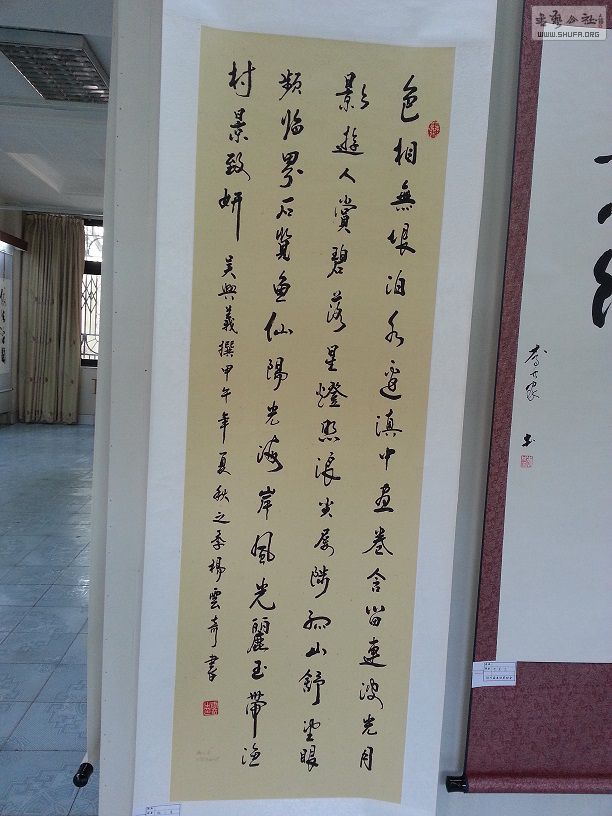 色相無垠泊水邊滇中畫卷含留連波光月
影遊人賞碧落星燈照浪尖屢陟孤山舒望眼
頻臨界石覽魚仙陽光海岸風光麗玉帶漁
村景致妍 吳興義撰甲午年夏秋之季楊雲奇書
WWW.SHUFA.ORG